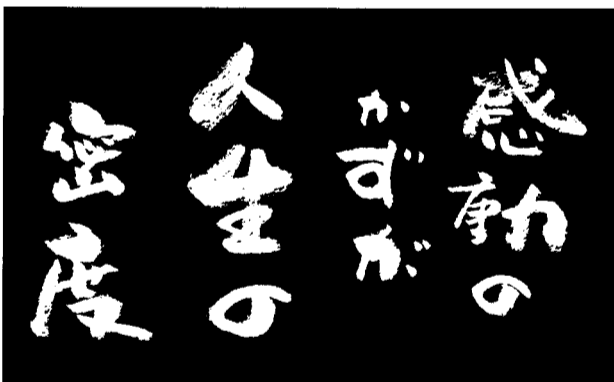 感動の
かずが
人生の
密度